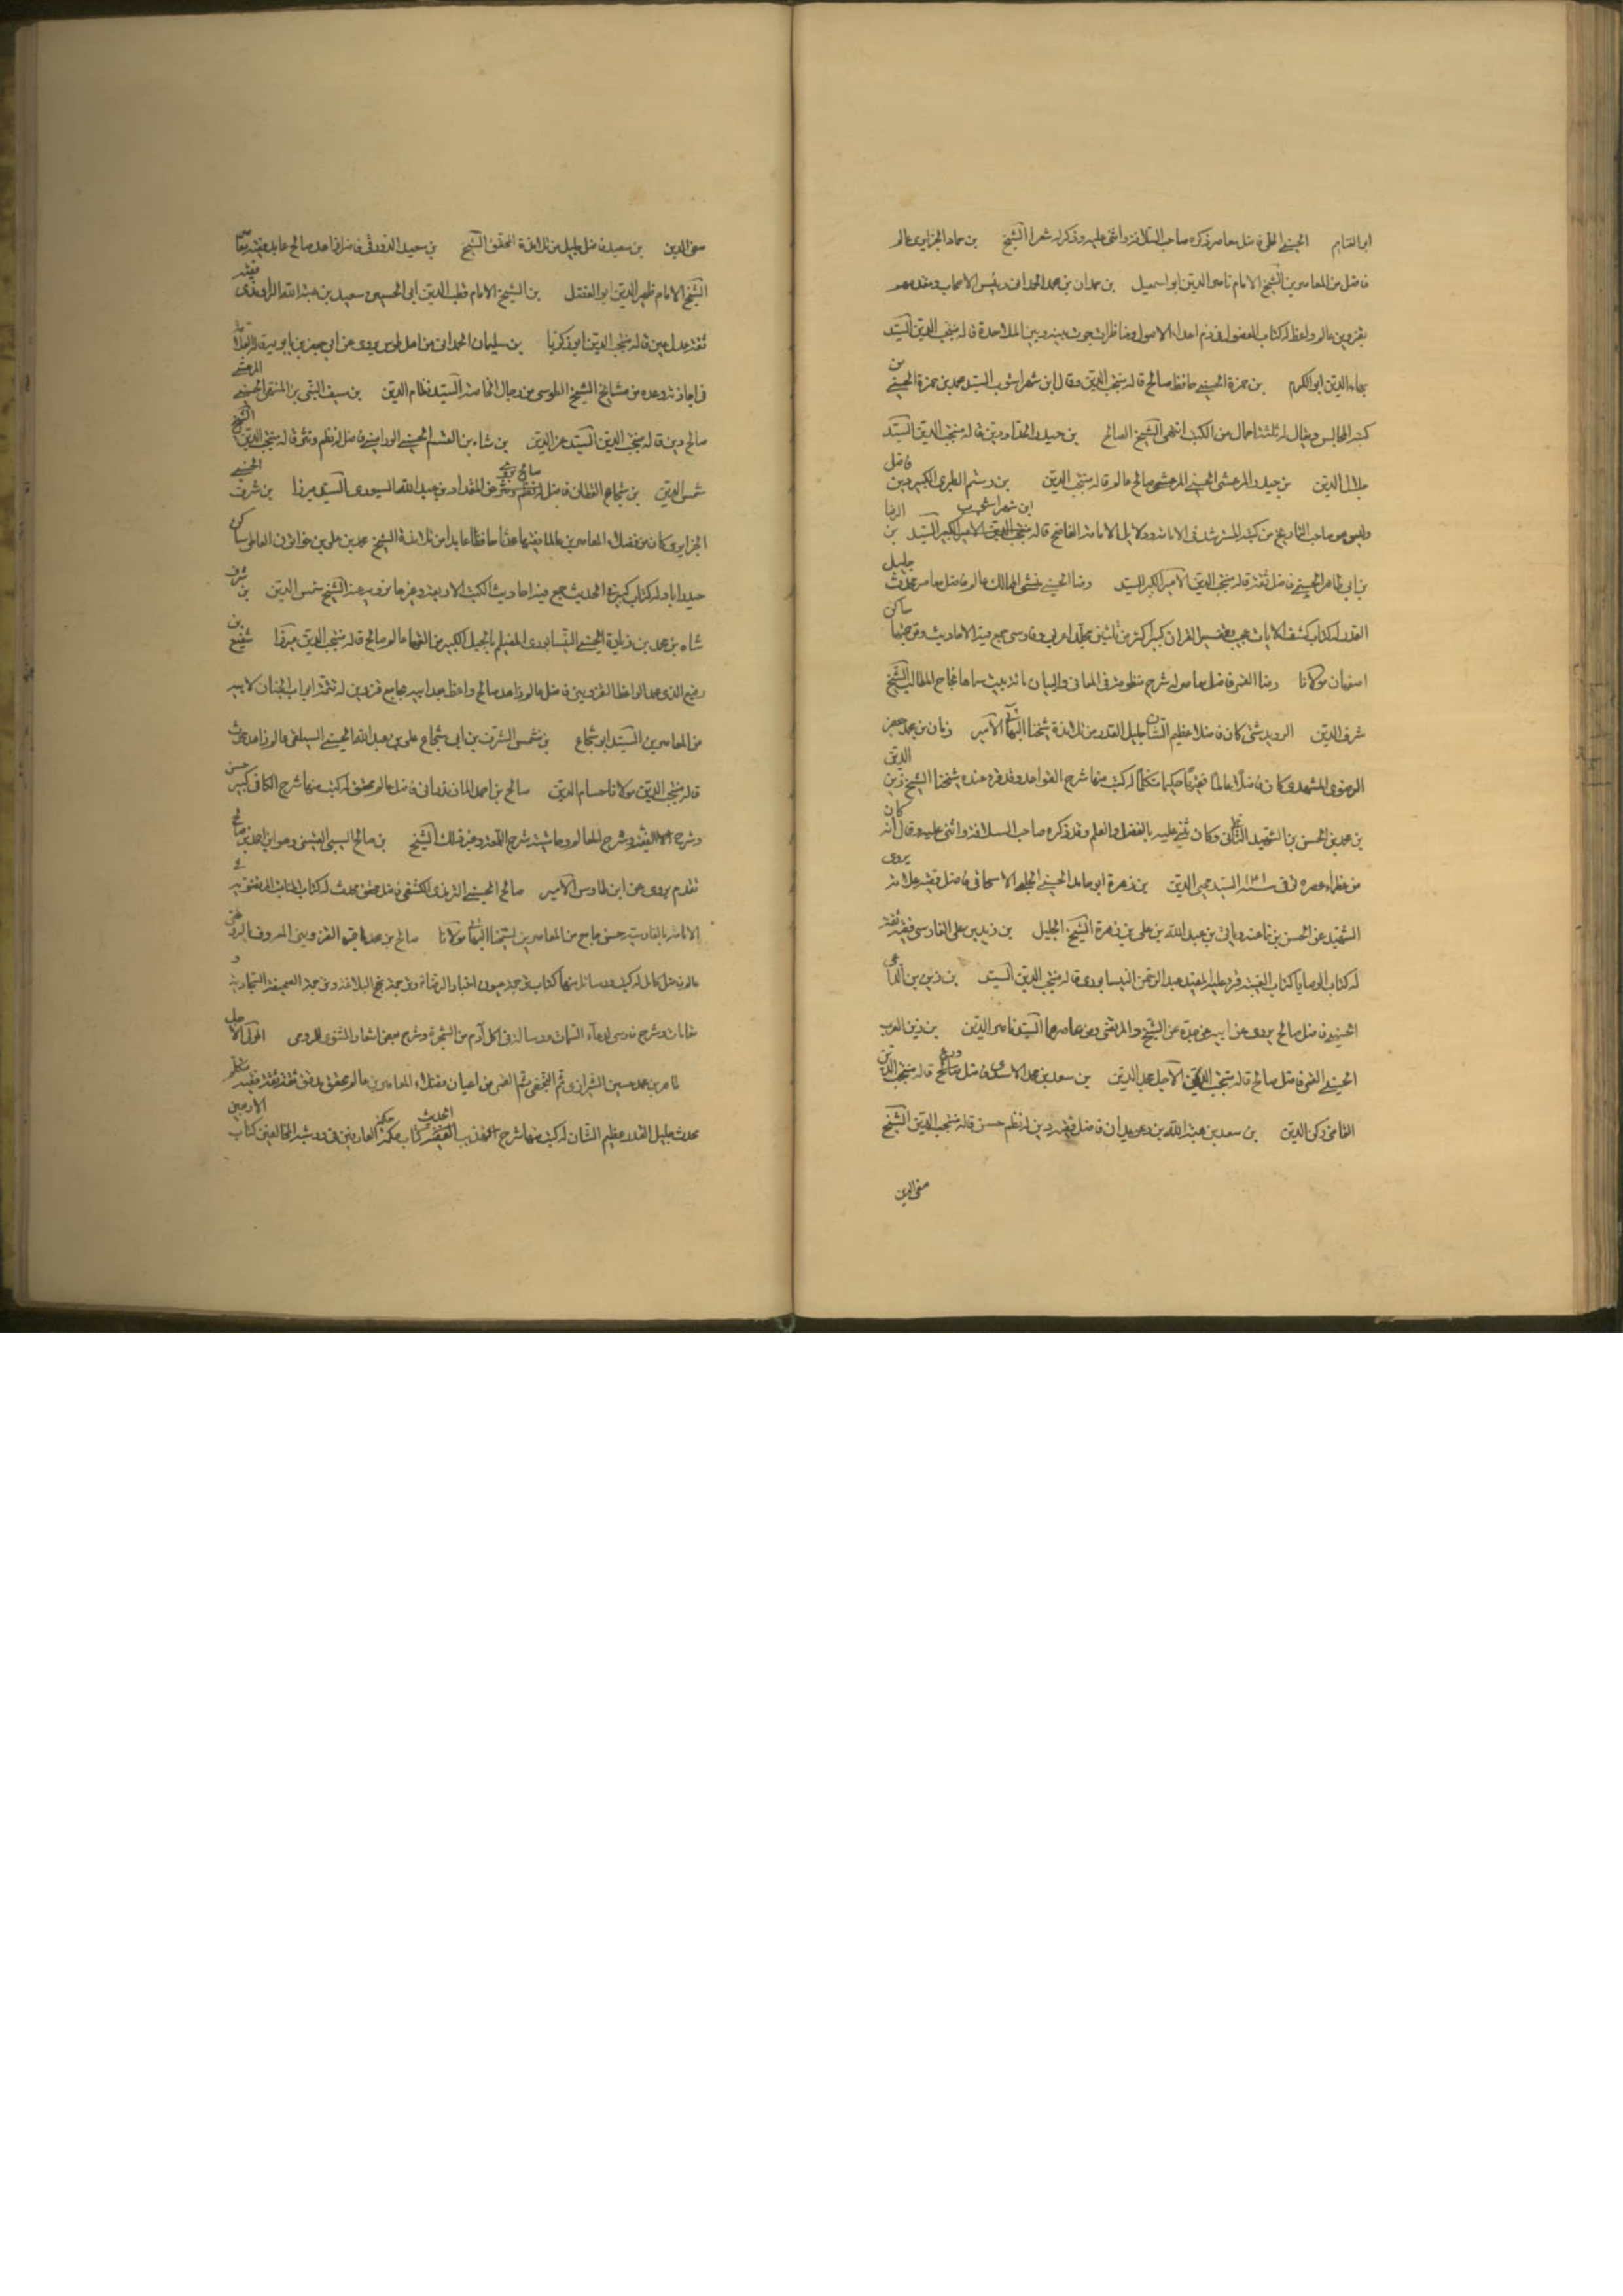 ابو الغنايم الحسيني الحلي فاضل معاصر ذكره صاحب السلافة واثنى عليه وذكر له شعرا الشيخ بن حماد الجزايري عالم
فاضل من المعاصرين الشيخ الامام ناصر الدين ابو اسمعيل بن حمدان بن محمد الحمداني رئيس الاصحاب ومقدمهم
بقزوين عالم واعظ له كتاب الفصول في ذم اعداء الاصول ومناظرات جرت بينه وبين الملاحدة قاله منتجب الدين السيد
بهاء الدين ابو الكرم بن حمزة الحسيني حافظ صالح قاله منتجب الدين وقال ابن شهراشوب السيد محمد بن حمزة الحسيني من
كتبه المجالس ويقال له ثلثة احمال من الكتب انتهى الشيخ الصالح بن حيدر الحداد دين قاله منتجب الدين السيد
جلال الدين بن حيدر المرعشي الحسيني المرعشي صالح عالم قاله منتجب الدين بن رستم الطبري الكبير دين فاضل
وليس هو صاحب التاريخ من كتبه المسترشد في الامامة ودلايل الامامة الفاضح قاله ابن شهراشوب السيد الرضا بن
بن ابي طاهر الحسيني فاضل ثقة قاله منتجب الدين الامير الكبير السيد رضا الحسيني منشي الممالك عالم فاضل معاصر محدث جليل
القدر له كتاب كشف الايات عجيب وتفسير القران كبير اكثر من ثلثين مجلدا عربي وفارسي جمع فيه الاحاديث وترجمتها ساكن
اصفهان مولانا رضا القمي فاضل معاصر له شرح منظومة في المعاني والبيان مائة بيت سماها نجاح المطالب الشيخ
شرف الدين الرويدشتي كان فاضلا عظيم الشان جليل القدر من تلامذة شيخنا البهائي الامير زمان بن محمد جعفر
الرضوي المشهدي كان فاضلا عالما فقيها حكيما متكلما له كتب منها شرح القواعد وقد قرء عنده شيخنا الشيخ زين الدين
بن محمد بن الحسن بن الشهيد الثاني وكان يثني عليه بالفضل والعلم وقد ذكره صاحب السلافة واثنى عليه وقال انه كان
من عظماء عصره توفى سنة ١٠٤١ السيد محيي الدين بن زهرة ابو حامد الحسيني الحلبي الاسحاقي فاضل فقيه علامة يروي
الشهيد عن الحسن بن نما عنه ويأتي بن عبد الله بن علي بن زهرة الشيخ الجليل بن زيد بن علي الفارسي فقيه ثقة
له كتاب الوصايا كتاب الغيبة قرء عليه المفيد عبد الرحمن النيسابوري قاله منتجب الدين السيد بن زين بن الداعي
الحسيني فاضل صالح يروي عن ابيه عن جده عن الشيخ والمرتضى ومن عاصرهما السيد ناصر الدين بن زين العرب
الحسيني القمي فاضل صالح قاله منتجب الدين الاجل مجد الدين بن سعد بن محمد الاسدي فاضل صالح ورع قاله منتجب الدين
القاضي زكي الدين بن سعد بن هبة الله بن دعويدار فاضل فقيه دين له نظم حسن قاله منتجب الدين الشيخ
صفي الدين
صفي الدين بن سعيد فاضل جليل من تلامذة المحقق الشيخ بن سعيد الدورقي فاضل زاهد صالح عابد فقيه معاصر
الشيخ الامام ظهير الدين ابو الفضل بن الشيخ الامام قطب الدين ابي الحسين سعيد بن هبة الله الراوندي فقيه
ثقة عدل عين قاله منتجب الدين ابو زكريا بن سليمان الحمداني من اهل طوس يروي عن ابي جعفر بن بابويه قاله العلامة
في اجازته وعده من مشايخ الشيخ الطوسي من رجال الخاصة السيد نظام الدين بن سيف النبي بن المنتهى الحسيني المرعشي
صالح دين قاله منتجب الدين السيد عز الدين بن شاه بن القسم الحسيني الوراميني فاضل له نظم ونثر قاله منتجب الدين الشيخ
شمس الدين بن شجاع القطان فاضل صالح يروي عن المقداد بن عبد الله السيوري السيد ميرزا بن شرف الحسيني
الجزايري كان من فضلاء المعاصرين عالما فقيها محدثا حافظا عابدا من تلامذة الشيخ محمد بن علي بن خواتون العاملي ساكن
حيدراباد له كتاب كبير في الحديث جمع فيه احاديث الكتب الاربعة وغيرها نرويه عنه الشيخ شمس الدين بن شرف
شاه بن محمد بن زيادة الحسيني النيسابوري المقيم بالجبل الكبير من الفقهاء عالم صالح قاله منتجب الدين ميرزا شفيع بن
رفيع الدين محمد الواعظ القزويني فاضل عالم زاهد صالح واعظ بعد ابيه بجامع قزوين له تتمة ابواب الجنان لابيه
من المعاصرين السيد ابو شجاع بن شمس الشرف بن ابي شجاع علي بن عبد الله الحسيني السيلقي عالم زاهد محدث
قاله منتجب الدين مولانا حسام الدين صالح بن احمد المازندراني فاضل عالم محقق له كتب منها شرح الكافي كبير حسن
وشرح الفقيه وشرح المعالم وحاشية شرح اللمعة وغير ذلك الشيخ بن صالح السيبي القسيني وهو ابن احمد بن صالح
تقدم يروي عن ابن طاوس الامير صالح الحسيني الترمذي الكشفي فاضل محقق محدث له كتاب المناقب المرتضوية في
الامامة بالفارسية حسن جامع من المعاصرين لشيخنا البهائي مولانا صالح بن محمد باقر القزويني المعروف بالروغني
عالم فاضل كامل له كتب ورسائل منها كتاب ترجمة عيون اخبار الرضا ع وترجمة نهج البلاغة وترجمة الصحيفة السجادية و
مقامات وشرح فارسي لدعاء السمات ورسالة في اكل آدم من الشجرة وشرح بعض اشعار المثنوي للرومي المولى الاجل
طاهر بن محمد حسين الشيرازي ثم النجفي ثم القمي من اعيان فضلاء المعاصرين عالم محقق مدقق ثقة ثقة فقيه متكلم
محدث جليل القدر عظيم الشان له كتب منها شرح تهذيب الحديث كتاب حكمة العارفين في رد شبه المخالفين كتاب الاربعين